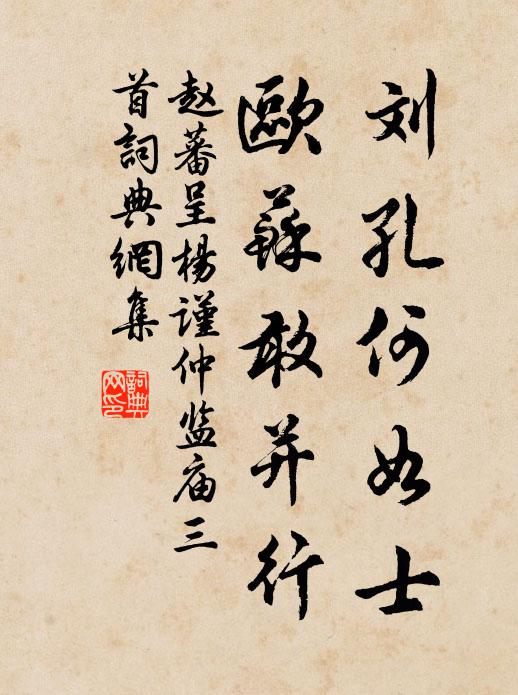 刘孔何如士
歐蘇敢并行
赵蕃呈楊谨仲监庙三
首詞典網集
詞典
网印